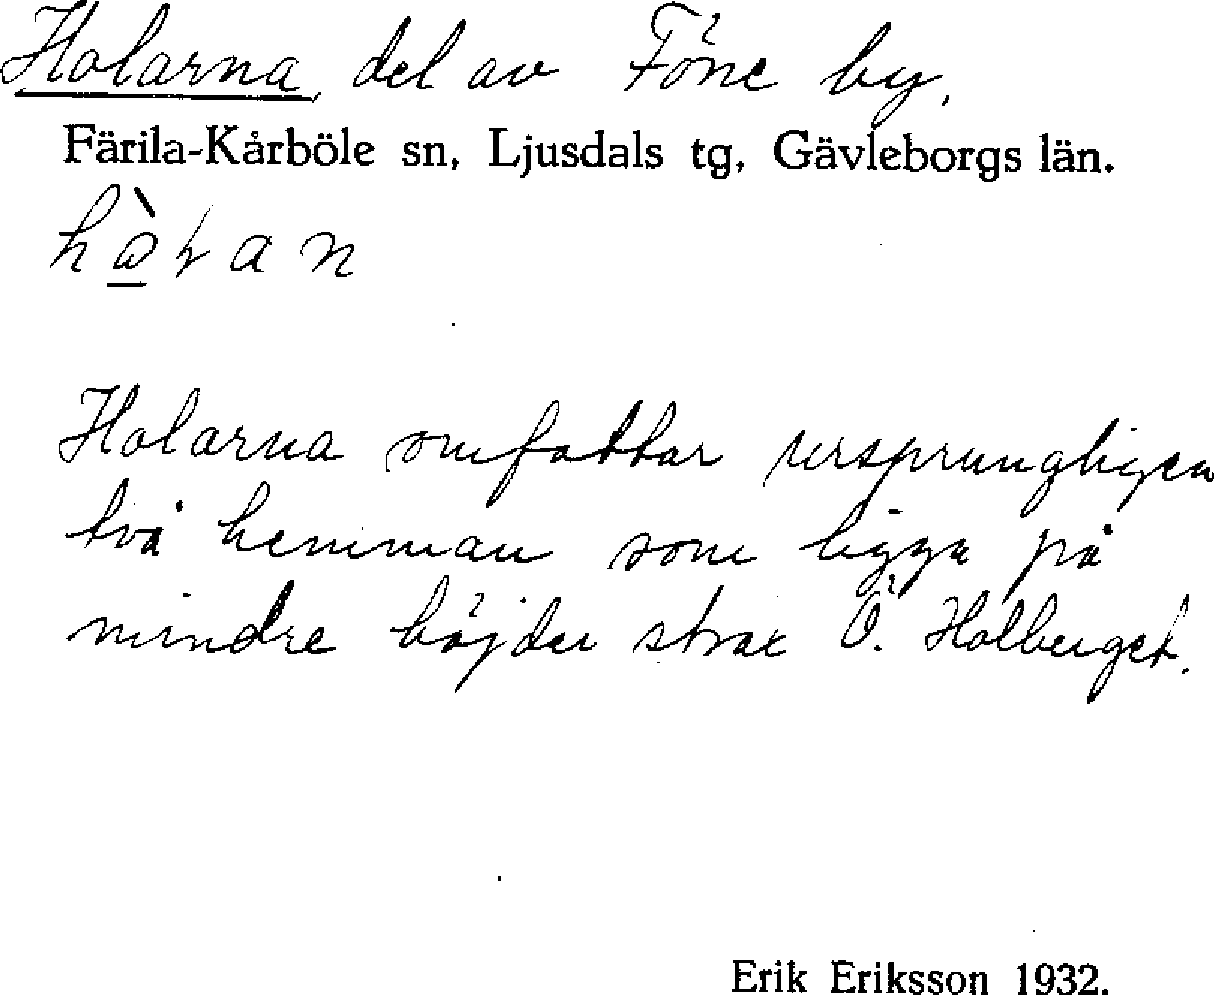 Holarna, del av Föne by.
Färila-Kårböle sn, Ljusdals tg, Gävleborgs län.
Holarna omfattar ursprungligen
två hemman som ligga på
mindre höjder strax Ö. Holberget.
Erik Eriksson 1932.